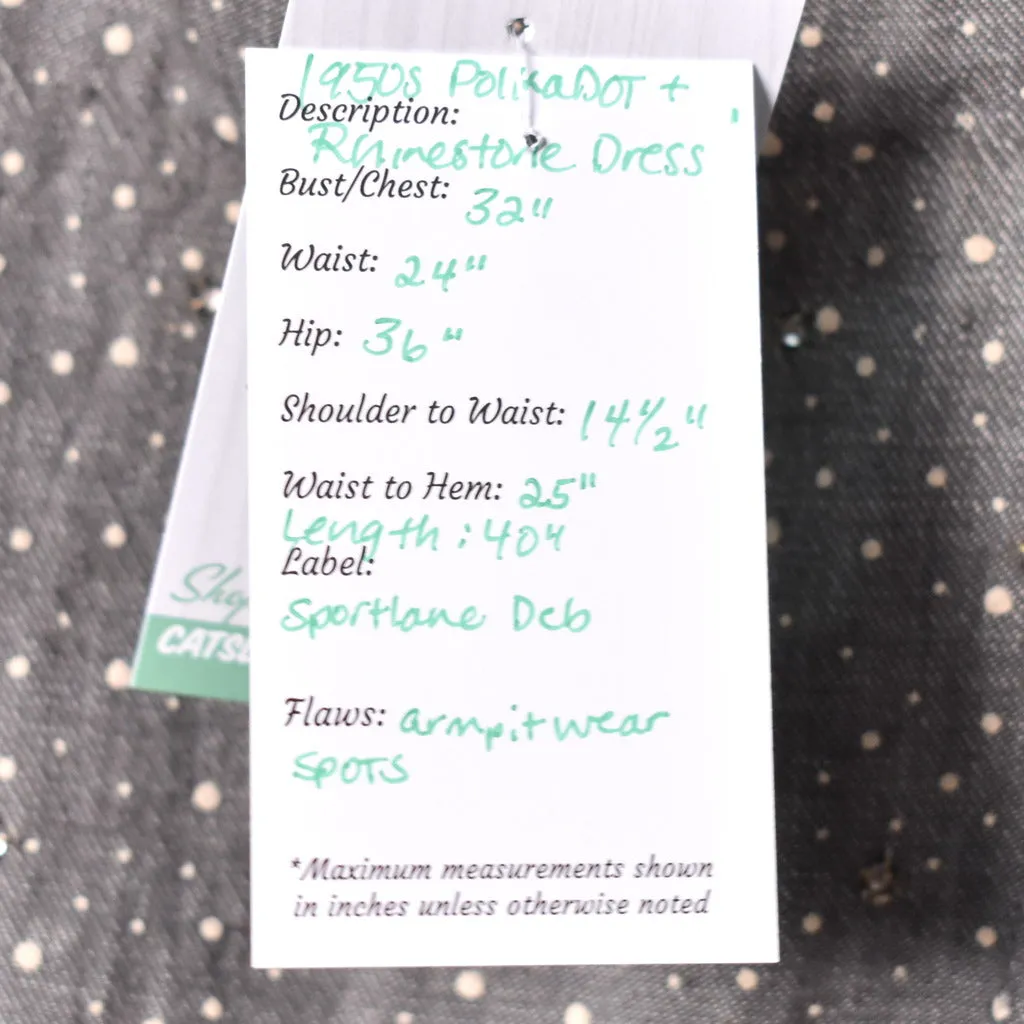 1950s PolkaDOT +
Description:
Rhinestone Dress
Bust/Chest: 32"
Waist: 24"
Hip: 36"
Shoulder to Waist: 14½"
Waist to Hem: 25"
Length: 40"
Label:
Sportlane Deb
Flaws: armpit wear
spots
*Maximum measurements shown
in inches unless otherwise noted